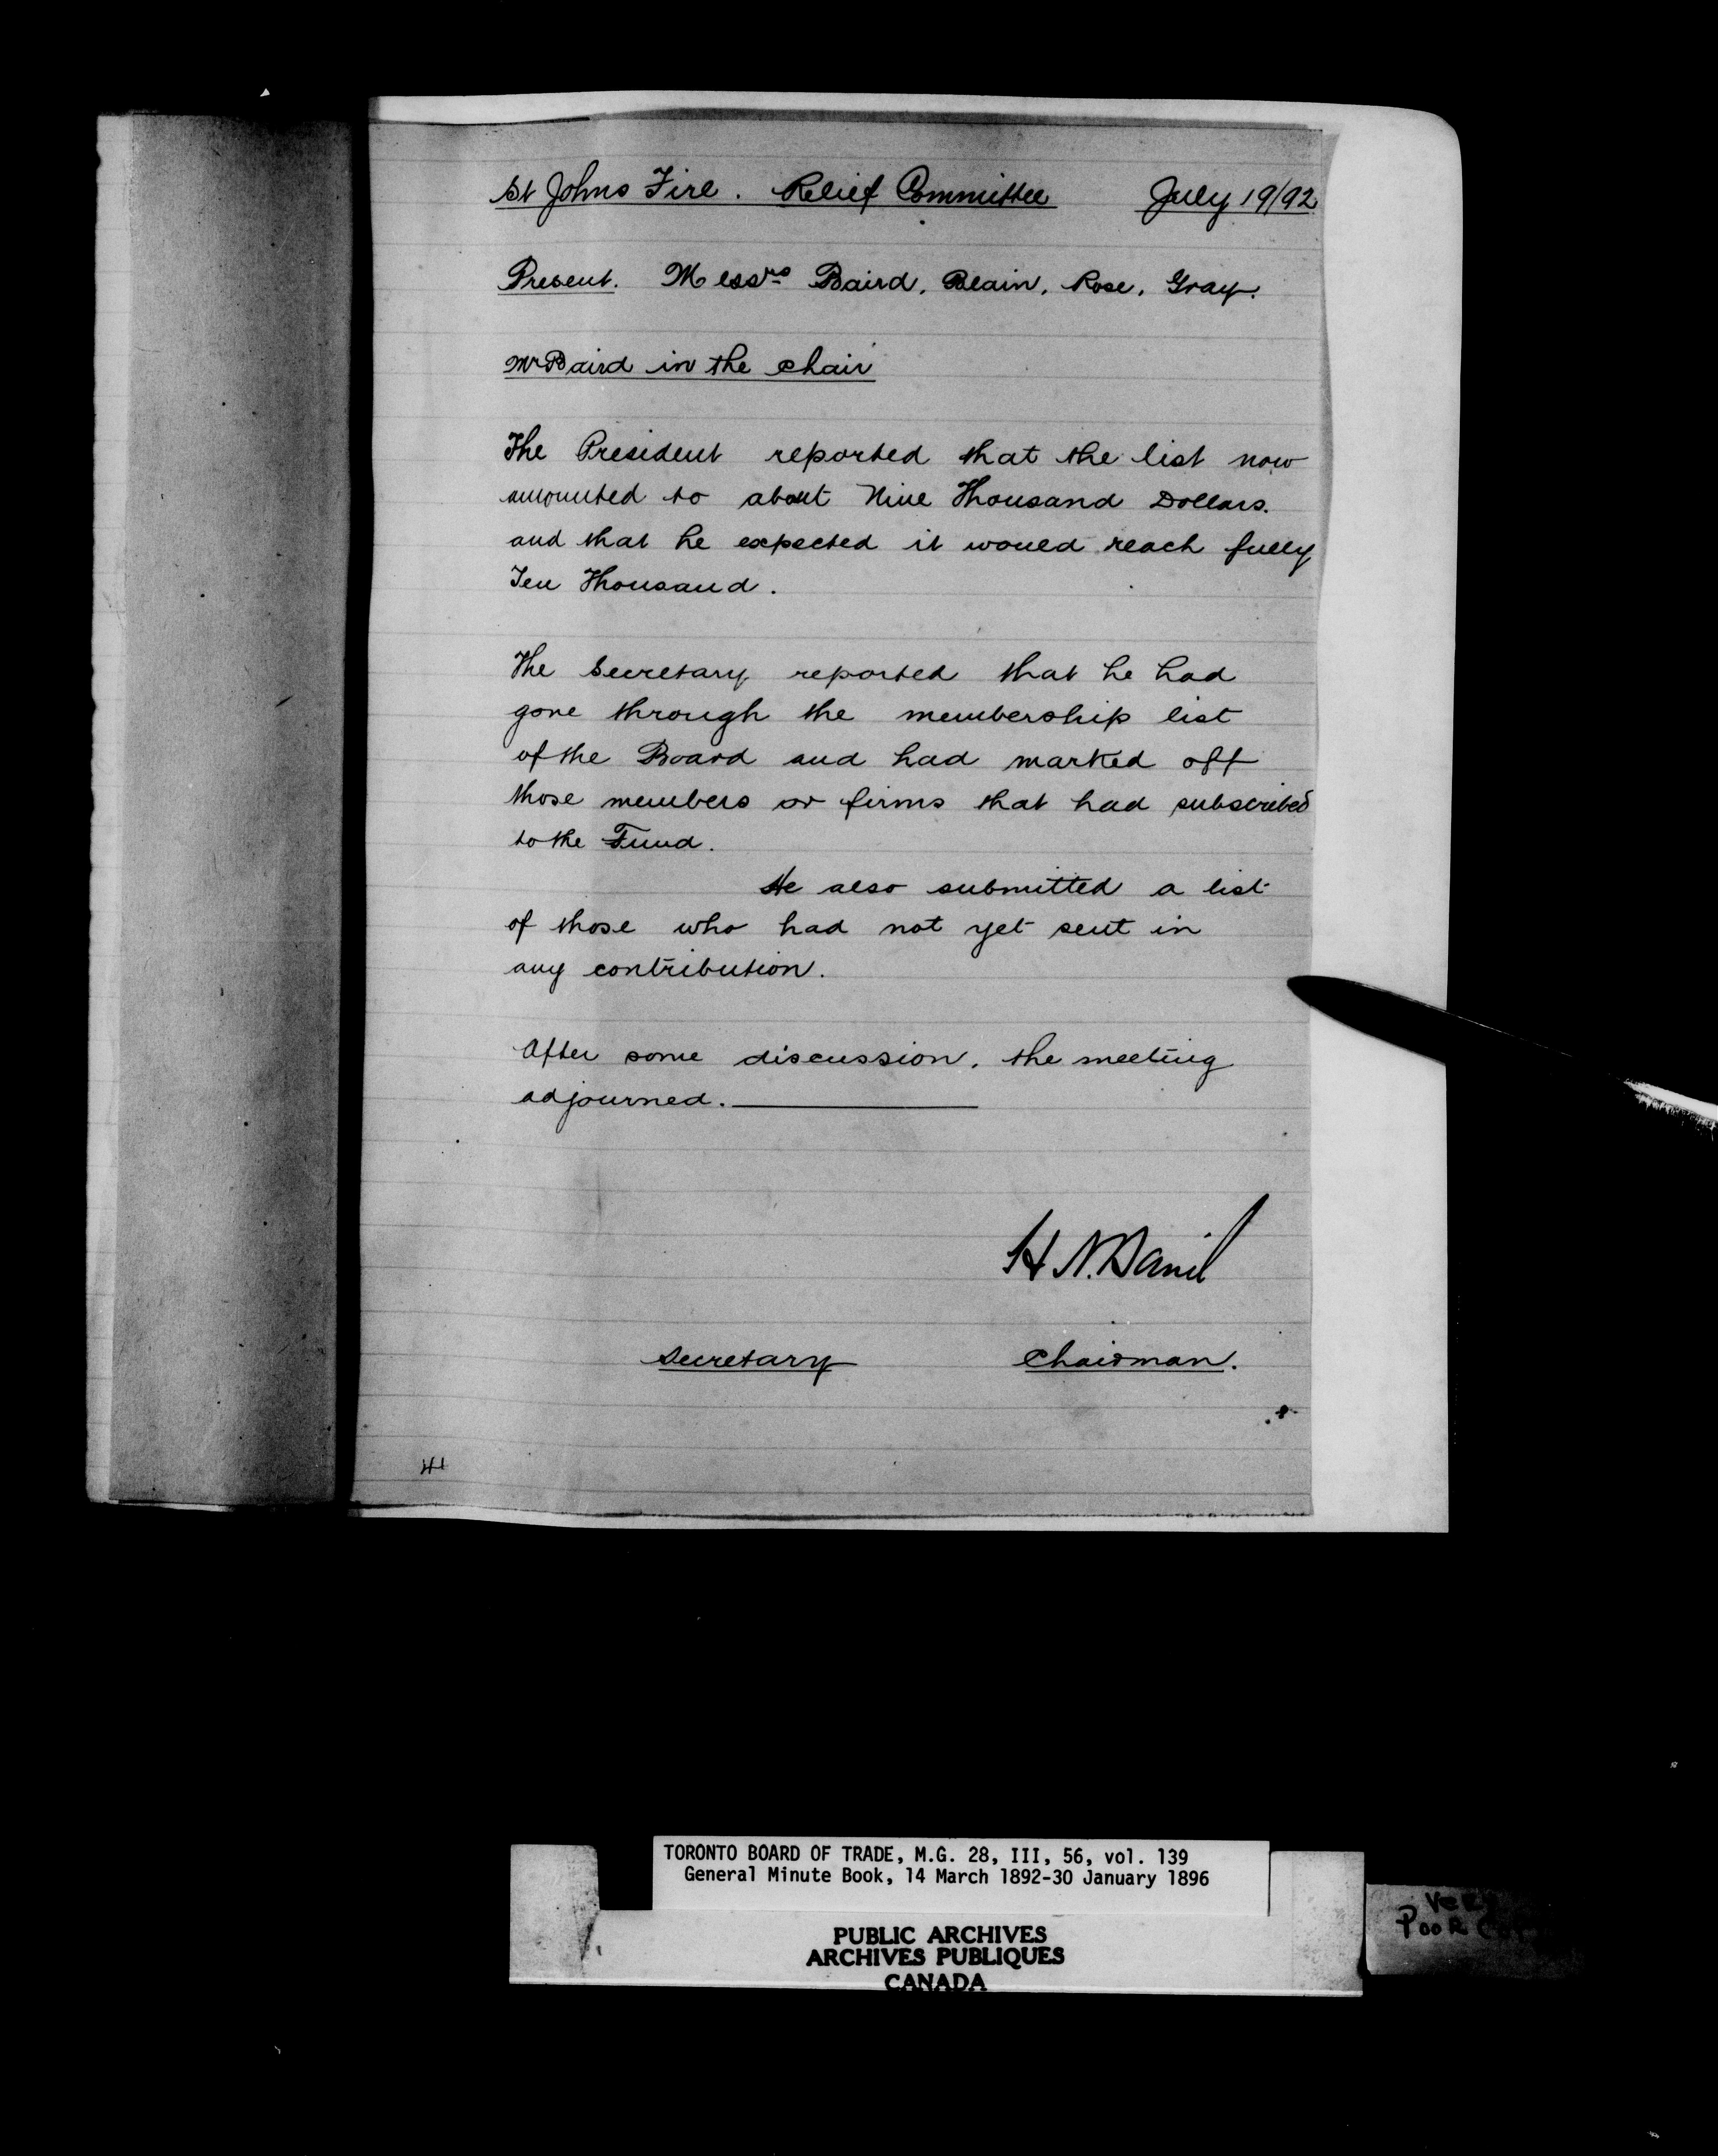 St Johns Fire. Relief Committee July 19/92
Present. Messrs Baird, Blain, Rose, Gray.
Mr Baird in the chair
The President reported that the list now
amounted to about Nine Thousand Dollars.
and that he expected it would reach fully
Ten Thousand.
The Secretary reported that he had
gone through the membership list
of the Board and had marked off
those members or firms that had subscribed
to the Fund.
He also submitted a list
of those who had not yet sent in
any contribution.
After some discussion, the meeting
adjourned.
H N. Baird
Secretary Chairman.
41
TORONTO BOARD OF TRADE, M.G. 28, III, 56, vol. 139
General Minute Book, 14 March 1892-30 January 1896
PUBLIC ARCHIVES
ARCHIVES PUBLIQUES
CANADA
POOR